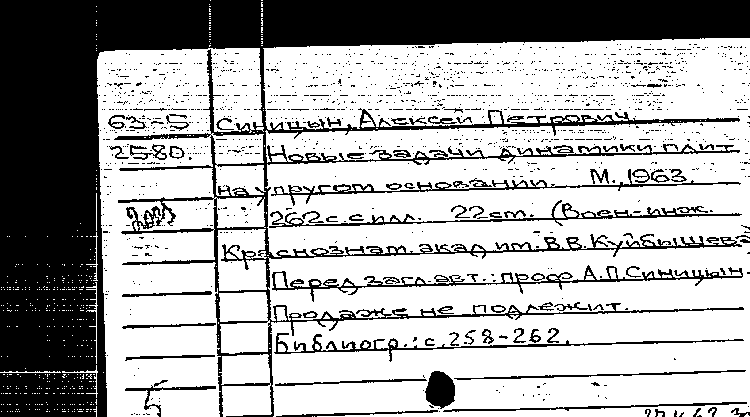 63-5 Синицын, Алексей Петрович.
2580. Новые задачи динамики плит
на упругом основании. М., 1963.
262 с. с илл. 22 см. (Воен-инж.
Краснознам. акад им. В.В. Куйбышева)
Перед загл. авт.: проф. А.П. Синицын.
Продаже не подлежит.
Библиогр.: с. 258-262.
5